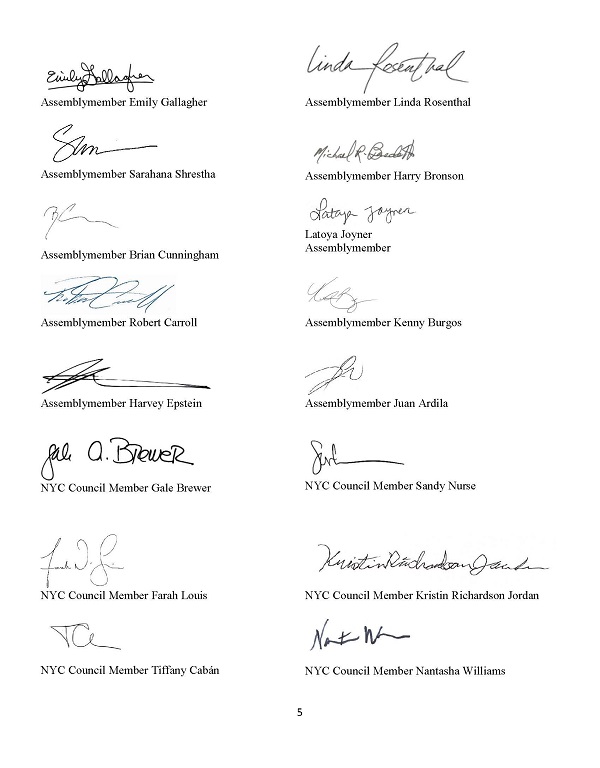 Emily Gallagher
Assemblymember Emily Gallagher
Linda Rosenthal
Assemblymember Linda Rosenthal
Assemblymember Sarahana Shrestha
Michael R. Benedetto
Assemblymember Harry Bronson
Assemblymember Brian Cunningham
Latoya Joyner
Latoya Joyner
Assemblymember
Robert Carroll
Assemblymember Robert Carroll
Assemblymember Kenny Burgos
Assemblymember Harvey Epstein
Assemblymember Juan Ardila
Gale A. Brewer
NYC Council Member Gale Brewer
NYC Council Member Sandy Nurse
NYC Council Member Farah Louis
Kristin Richardson Jordan
NYC Council Member Kristin Richardson Jordan
NYC Council Member Tiffany Cabán
NYC Council Member Nantasha Williams
5